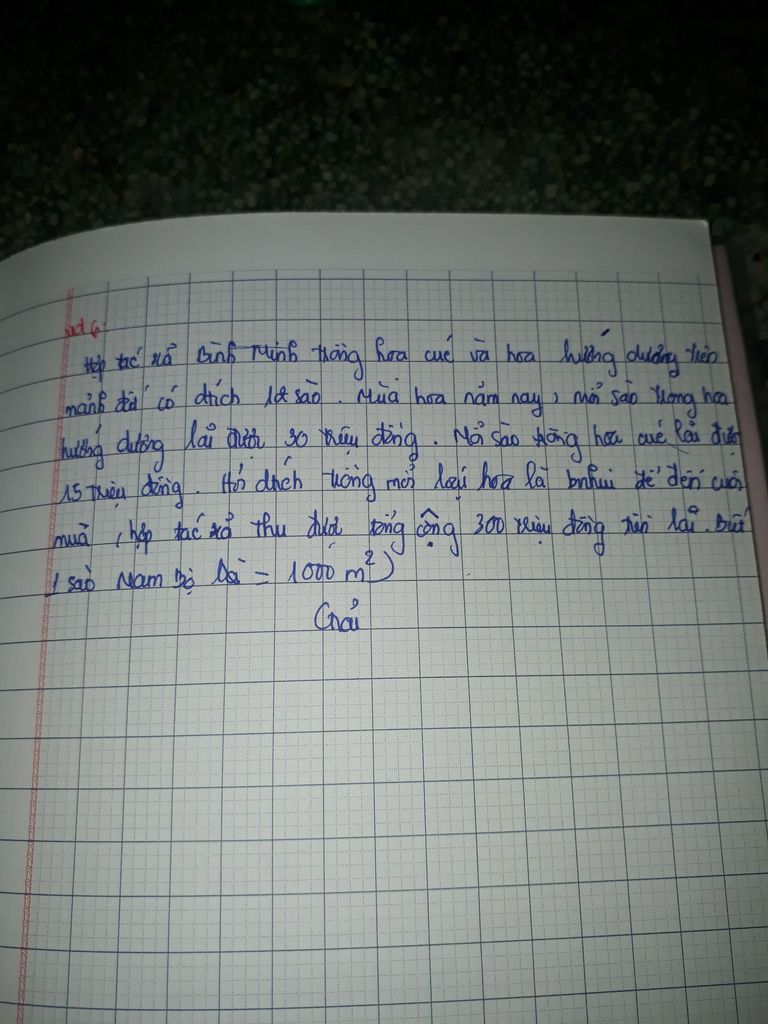 Hợp tác xã Bình Minh trồng hoa cúc và hoa hướng dương trên
mảnh đất có dtích sào. Mùa hoa năm nay, mỗi sào trồng hoa
hướng dương lãi được 30 triệu đồng. Mỗi sào trồng hoa cúc lãi được
15 triệu đồng. Hỏi dtích trồng mỗi loại hoa là bnhiu để đến cuối
mùa, hợp tác xã thu được tổng cộng 300 triệu đồng tiền lãi. Biết
1 sào Nam Bộ là = 1000 m²)
Giải